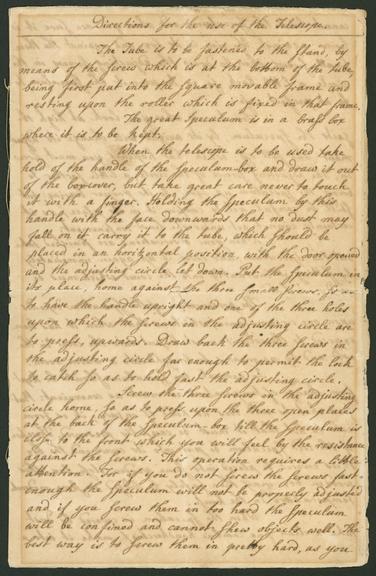 Directions for the use of the Telescope.
The Tube is to be fastened to the Stand, by
means of the screw which is at the bottom of the tube,
being first put into the square movable frame and
resting upon the roller which is fixed in that frame.
The great Speculum is in a brass box
where it is to be kept.
When the telescope is to be used take
hold of the handle of the Speculum-box and draw it out
of the box cover, but take great care never to touch
it with a finger. Holding the Speculum by this
handle with the face downwards that no dust may
fall on it carry it to the tube, which should be
placed in an horizontal position with the door opened
and the adjusting circle let down. Put the Speculum in
its place, home against the three small screws, so as
to have the handle upright and one of the three holes
upon which the screws in the adjusting circle are
to press, upwards. Draw back the three screws in
the adjusting circle far enough to permit the lock
to catch so as to hold fast the adjusting circle.
Screw the three screws in the adjusting
circle home, so as to press upon the three open places
at the back of the Speculum-box till the Speculum is
close to the front which you will feel by the resistance
against the screws. This operation requires a little
attention. For if you do not screw the screws fast
enough the Speculum will not be properly adjusted
and if you screw them in too hard the Speculum
will be confined and cannot shew objects well. The
best way is to screw them in pretty hard, as you